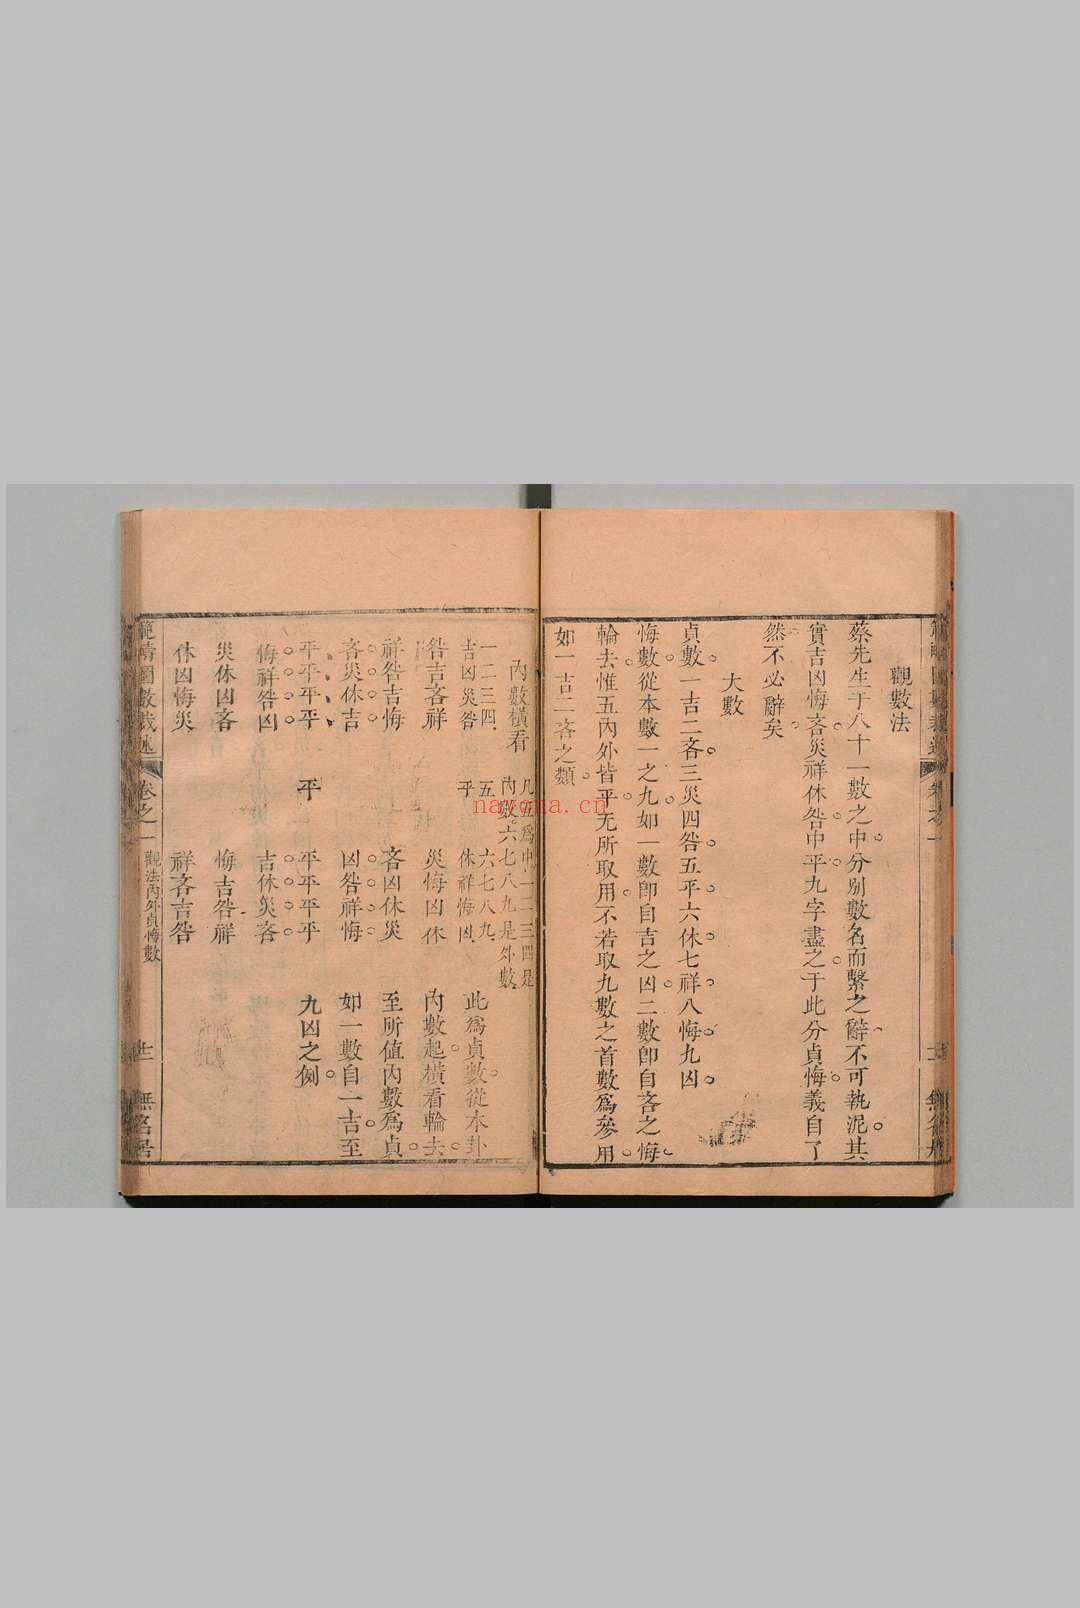 觀數法
蔡先生于八十一數之中分別數名而繫之辭不可執泥其
實吉凶悔吝災祥休咎中平九字盡之于此分貞悔義自了
然不必辭矣
大數
貞數一吉二吝三災四咎五平六休七祥八悔九凶
悔數從本數一之九如一數卽自吉之凶二數卽自吝之悔
輪去惟五內外皆平无所取用不若取九數之首數爲參用
如一吉二吝之類
凡五爲中一二三四是
內數橫看 內數六七八九是外數
一二三四 五 六七八九
吉凶災咎 平 休祥悔凶 此爲貞數從本卦
咎吉吝祥 災悔凶休 內數起橫看輪去
祥咎吉悔 吝凶休災 至所值內數爲貞
吝災休吉 凶咎祥悔 如一數自一吉至
平平平平 平 平平平平 九凶之例
悔祥咎凶 吉休災吝
災休凶吝 悔吉咎祥
休凶悔災 祥吝吉咎
範疇圖數裁述 卷之一 觀法內外貞悔數 無名居
nayona.cn